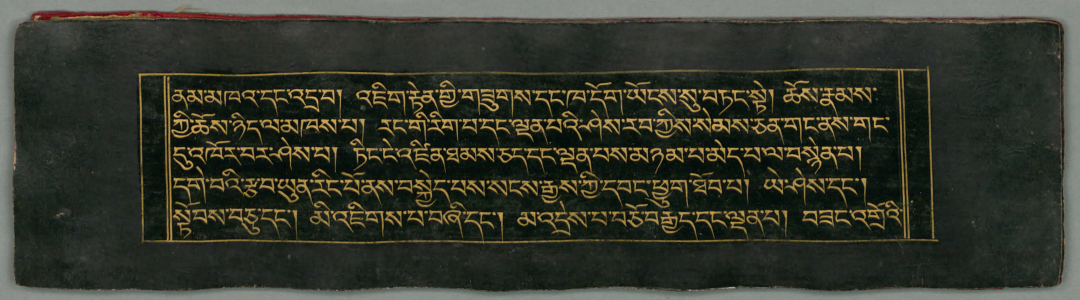 ནམ་མཁའ་དང་འདྲ་བ། འཇིག་རྟེན་གྱི་གཟུགས་དང་ཁ་དོག་ཡོངས་སུ་བཏང་སྟེ། ཆོས་རྣམས་
ཀྱི་ཆོས་ཉིད་ལ་མཁས་པ། རང་གི་རིག་པ་དང་ལྡན་པའི་ཤེས་རབ་ཀྱིས་སེམས་ཅན་གང་ནས་གང་
དུ་འཁོར་བར་ཤེས་པ། ཏིང་ངེ་འཛིན་ཐམས་ཅད་དང་ལྡན་པས་མཉམ་པ་མེད་པ་ལ་བསྙེན་པ།
དགེ་བའི་རྩ་བ་ཡུན་རིང་པོ་ནས་བསྐྱེད་པས་སངས་རྒྱས་ཀྱི་དབང་ཕྱུག་ཐོབ་པ། ཡེ་ཤེས་དང་།
སྟོབས་བཅུ་དང་། མི་འཇིགས་པ་བཞི་དང་། མ་འདྲེས་པ་བཅོ་བརྒྱད་དང་ལྡན་པ། བཟང་འགྲོའི་